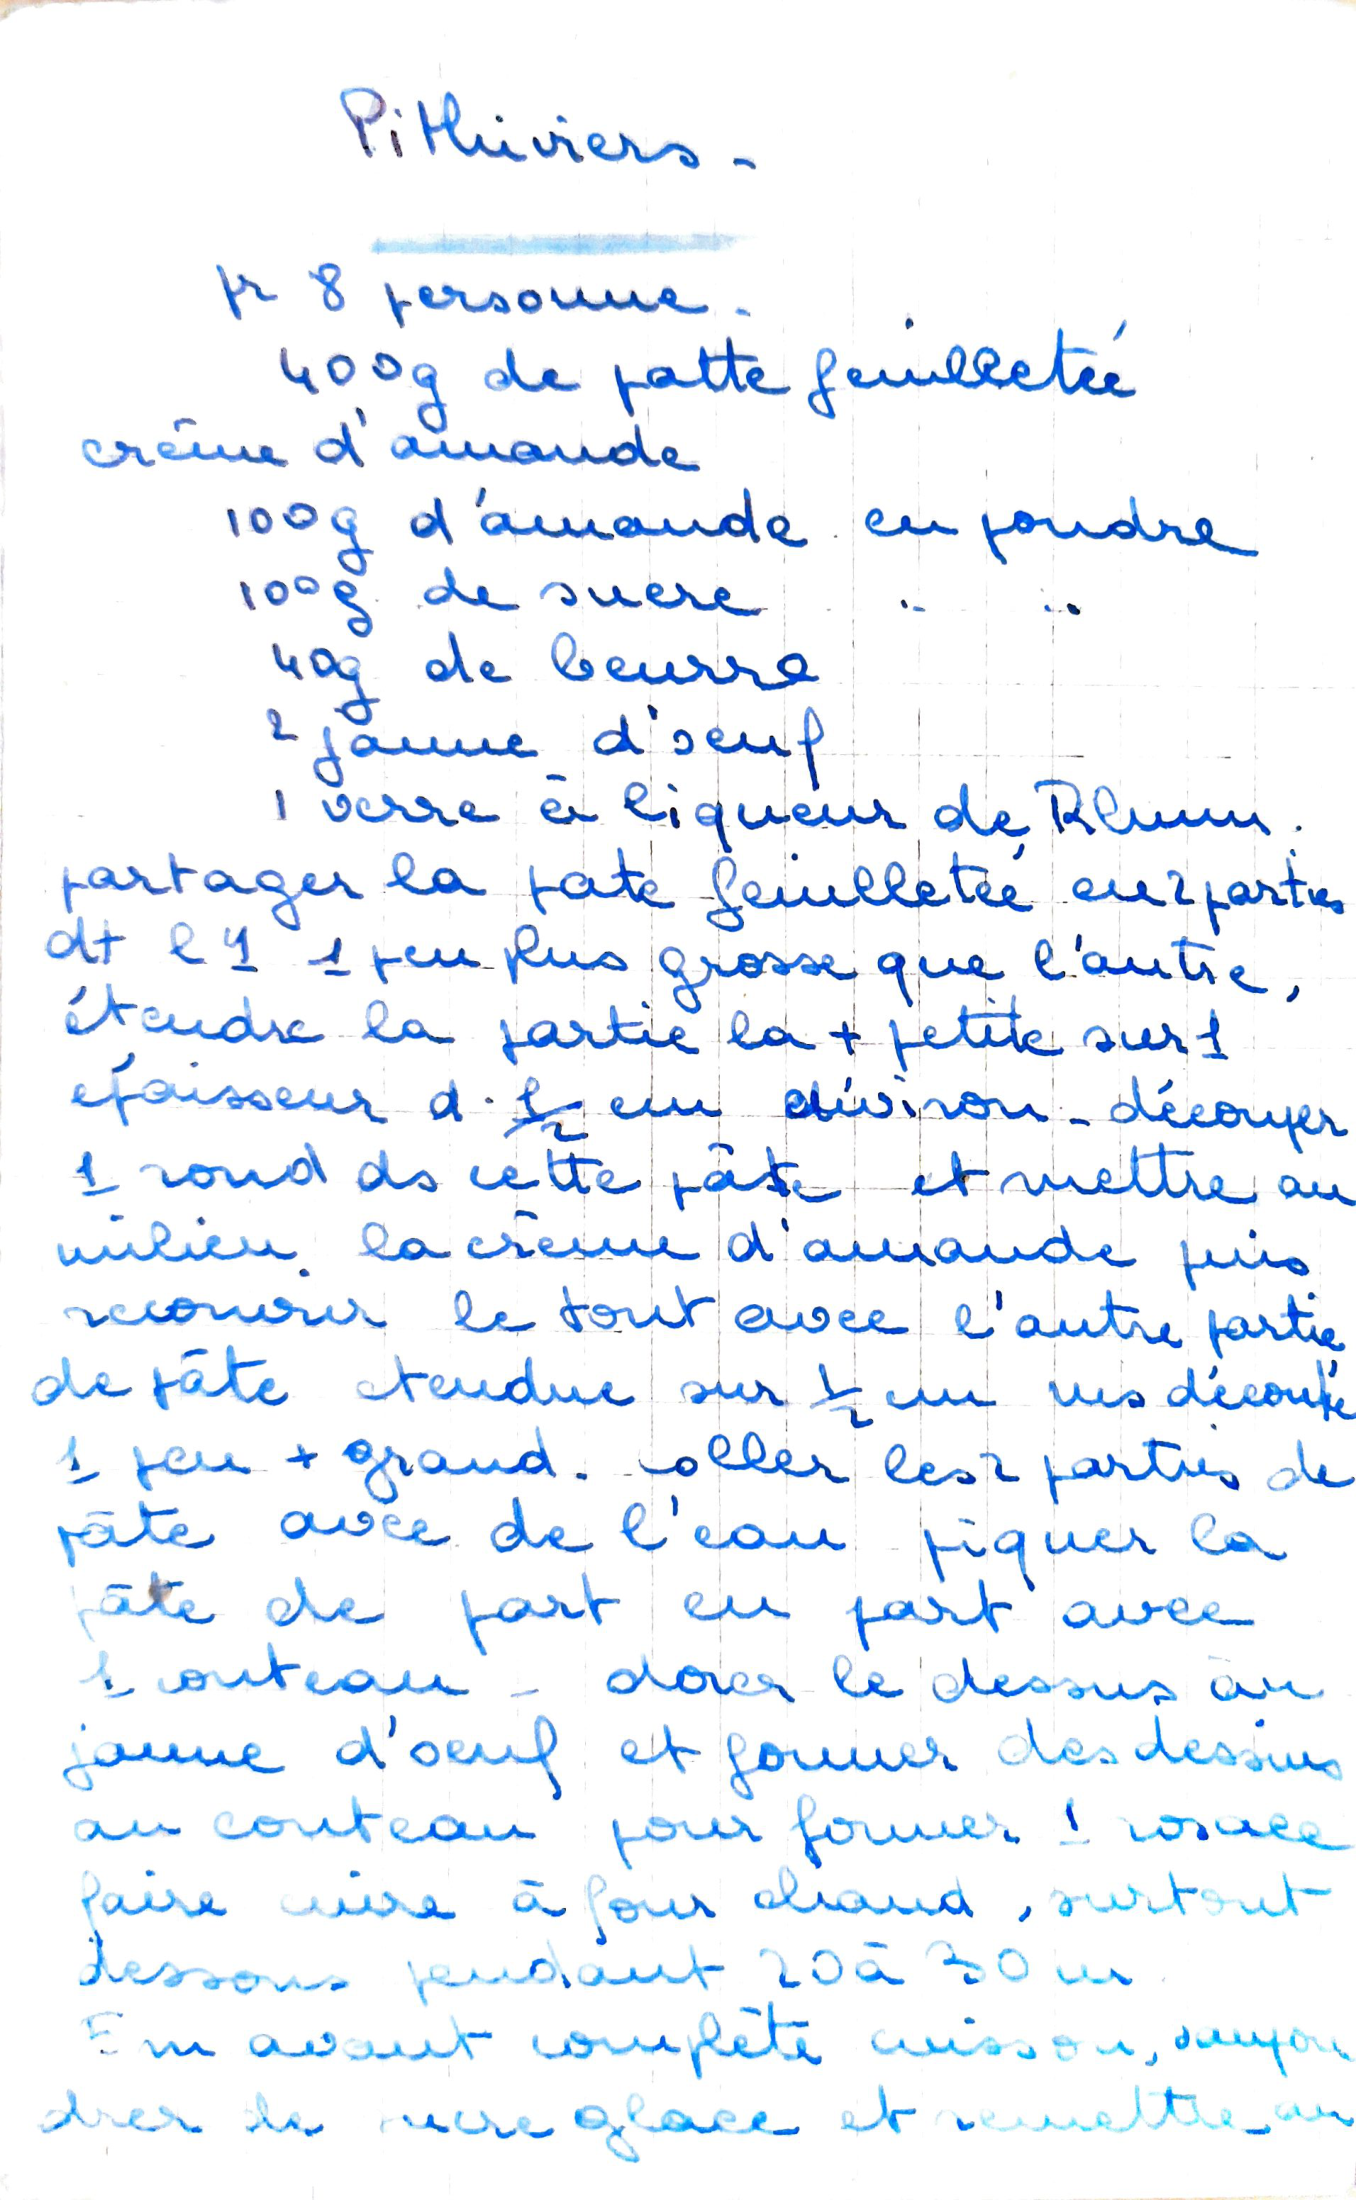 Pithiviers -
pr 8 personne.
400g de patte feuilletée
crème d'amande
100g d'amande en poudre
100g de sucre " "
40g de beurre
2 jaune d'oeuf
1 verre à liqueur de Rhum.
partager la pate feuilletée en 2 parties
dt l'1 1 peu plus grosse que l'autre,
étendre la partie la + petite sur 1
epaisseur d. 1/2 cm environ - découper
1 rond ds cette pâte et mettre au
milieu la crème d'amande puis
recouvrir le tout avec l'autre partie
de pâte etendue sur 1/2 cm ms découpé
1 peu + grand. coller les 2 parties de
pâte avec de l'eau piquer la
pâte de part en part avec
1 couteau - dorer le dessus au
jaune d'oeuf et former des dessins
au couteau pour former 1 rosace
faire cuire à four chaud, surtout
dessous pendant 20 à 30 m
5 m avant complète cuisson, saupou
drer de sucre glace et remettre au